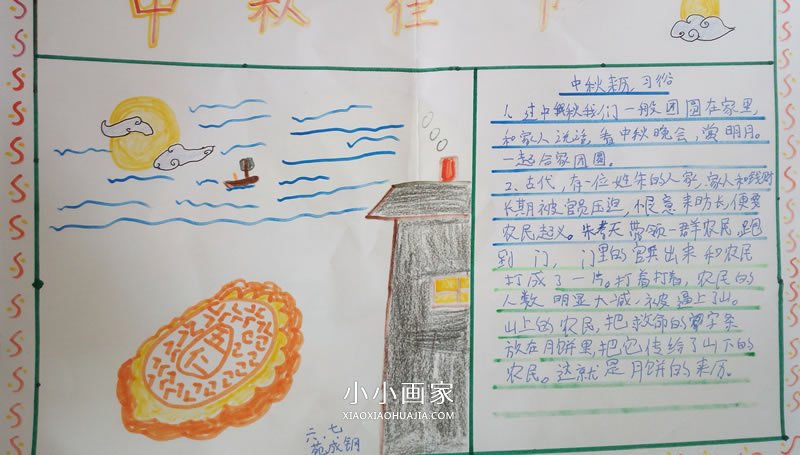 中秋佳节
中秋来历、习俗
1、过中秋我们一般团圆在家里,
和家人说话,看中秋晚会,赏明月。
一起合家团圆。
2、古代,有一位姓朱的人家,家人和钱财
长期被官员压迫,
农民起义。朱春天带领一群农民,跑
到门,门里的官兵出来和农民
打成了一片。打着打着,农民的
人数明显大减,被逼上了山。
山上的农民,把救命的字条
放在月饼里,把它传给了山下的
农民。这就是月饼的来历。
小小画家
XIAOXIAOHUAJIA.COM
六、七